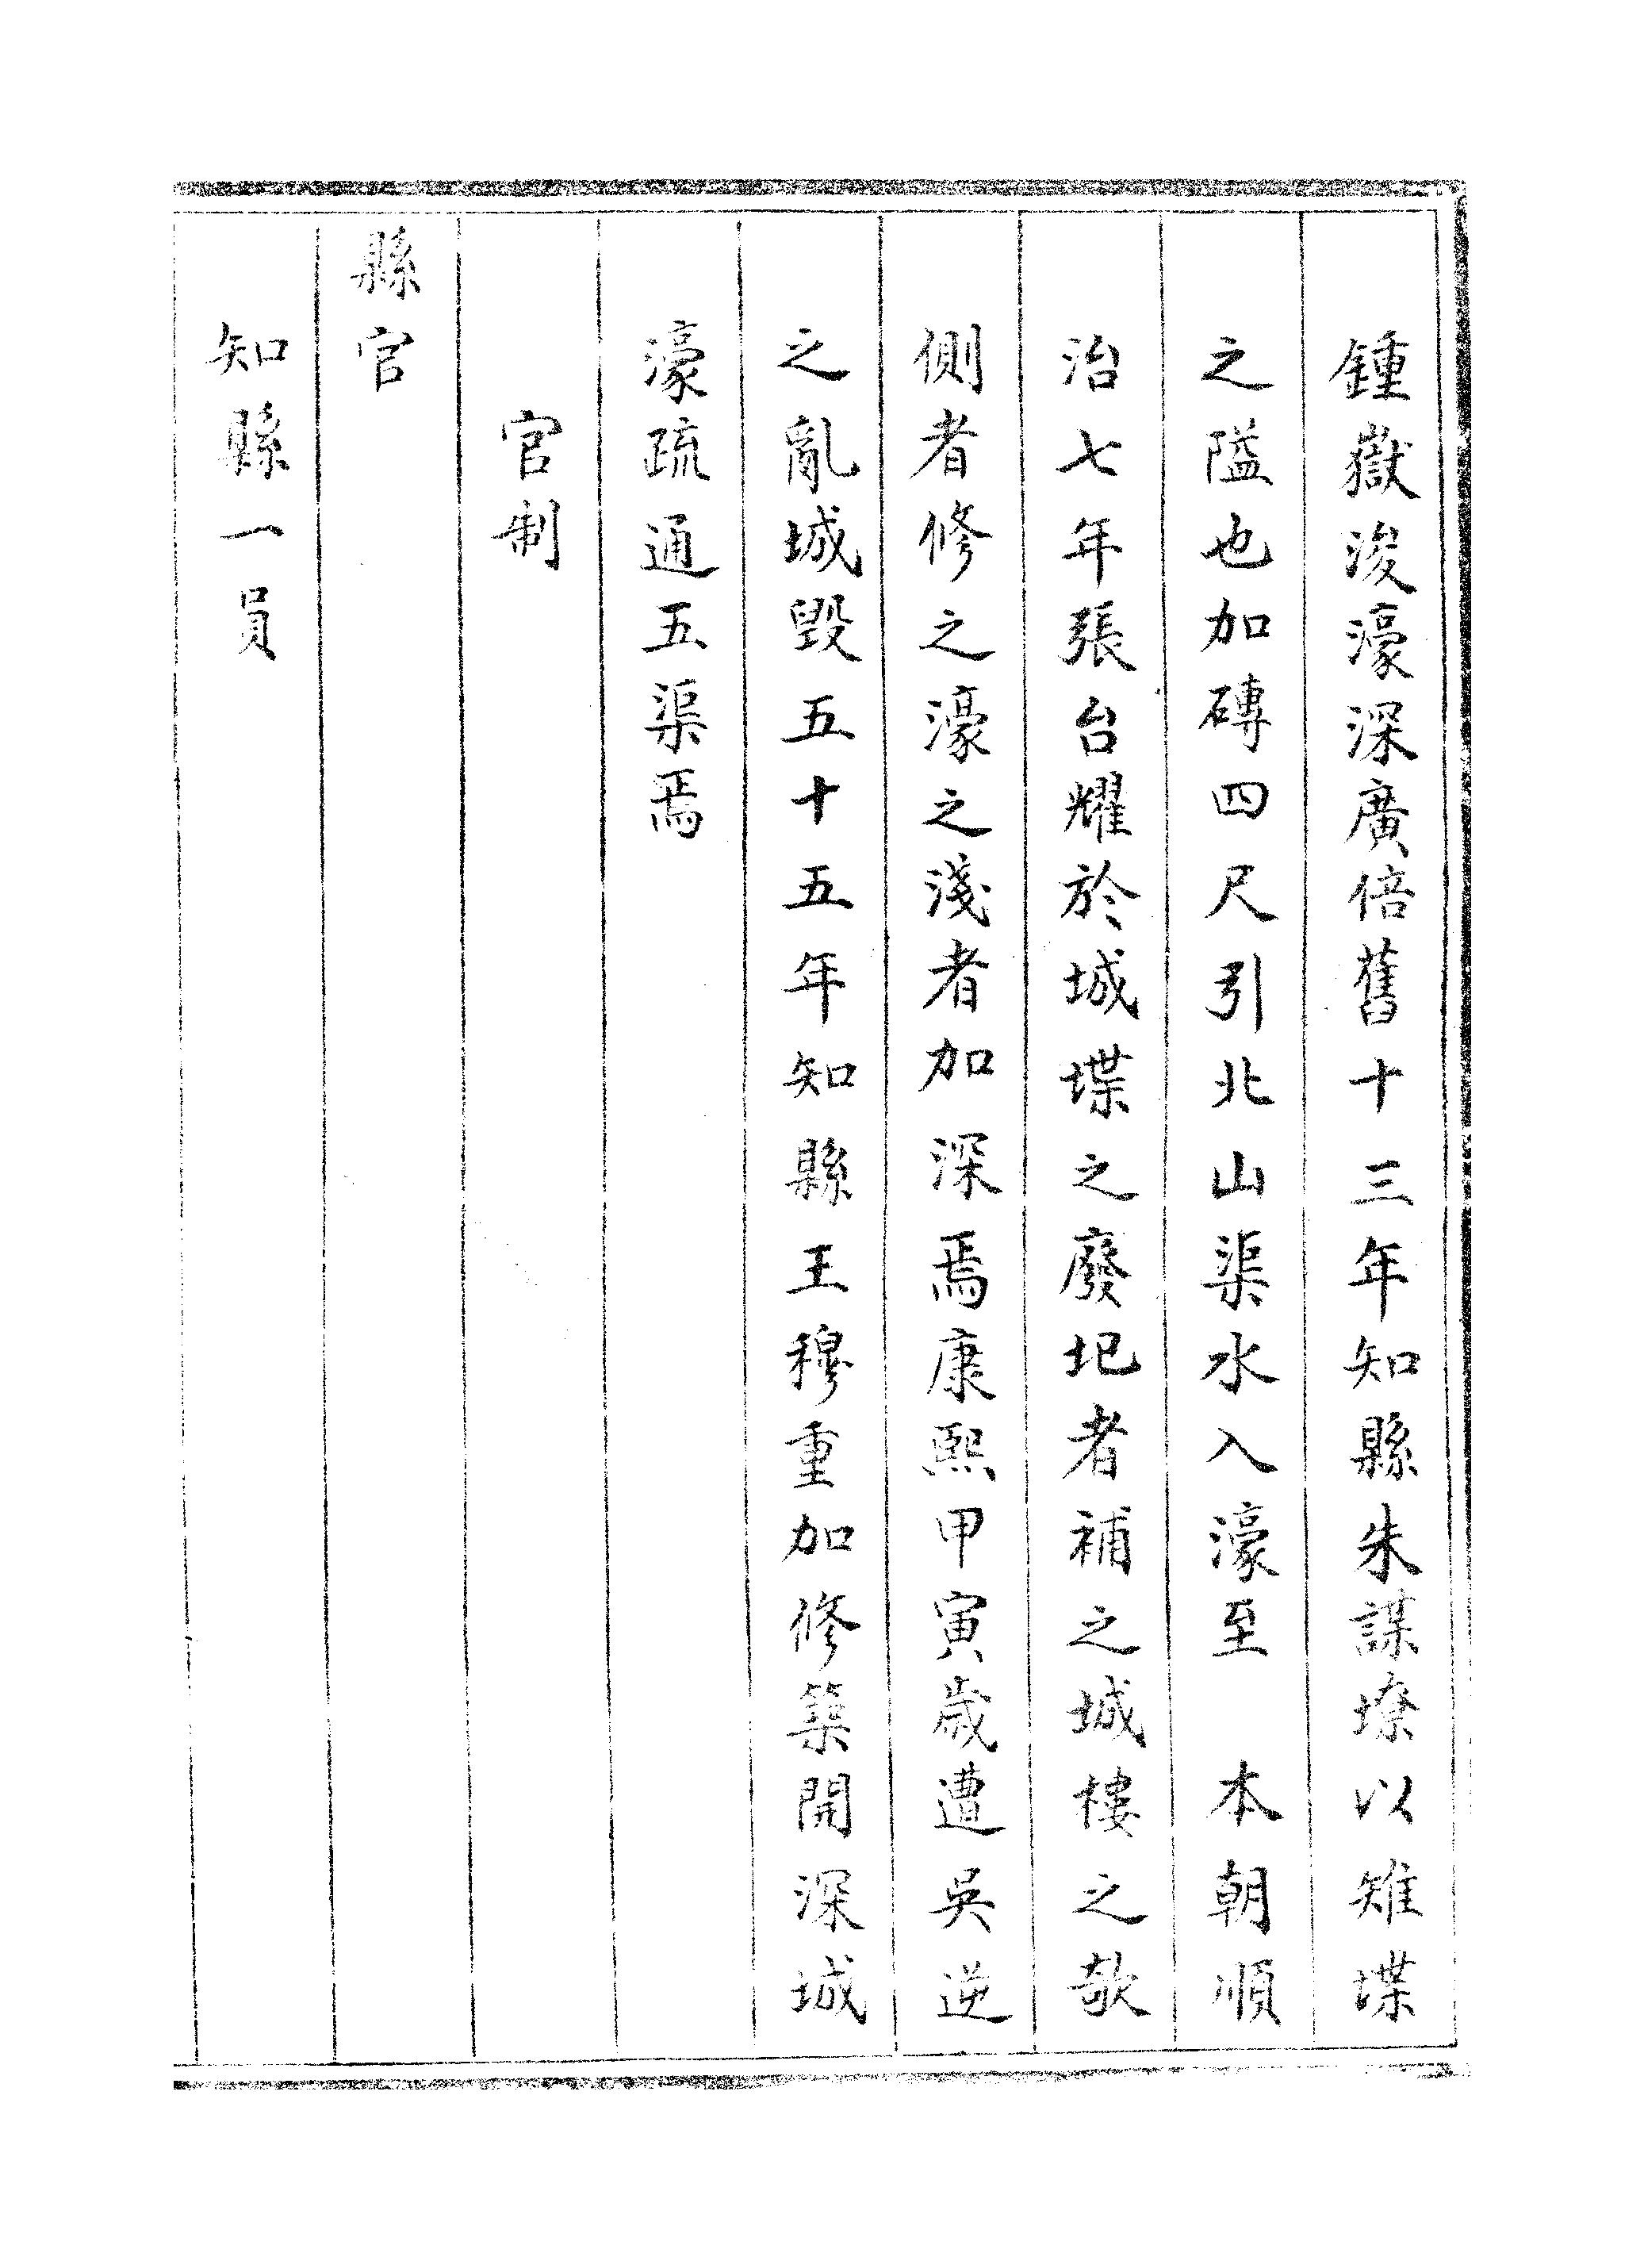 鍾嶽浚濠深廣倍舊十三年知縣朱謀㙩以雉堞
之隘也加磚四尺引北山渠水入濠至　本朝順
治七年張台耀於城堞之廢圯者補之城樓之欹
側者修之濠之淺者加深焉康熙甲寅歲遭吳逆
之亂城毀五十五年知縣王穆重加修築開深城
濠疏通五渠焉
官制
縣官
知縣一員